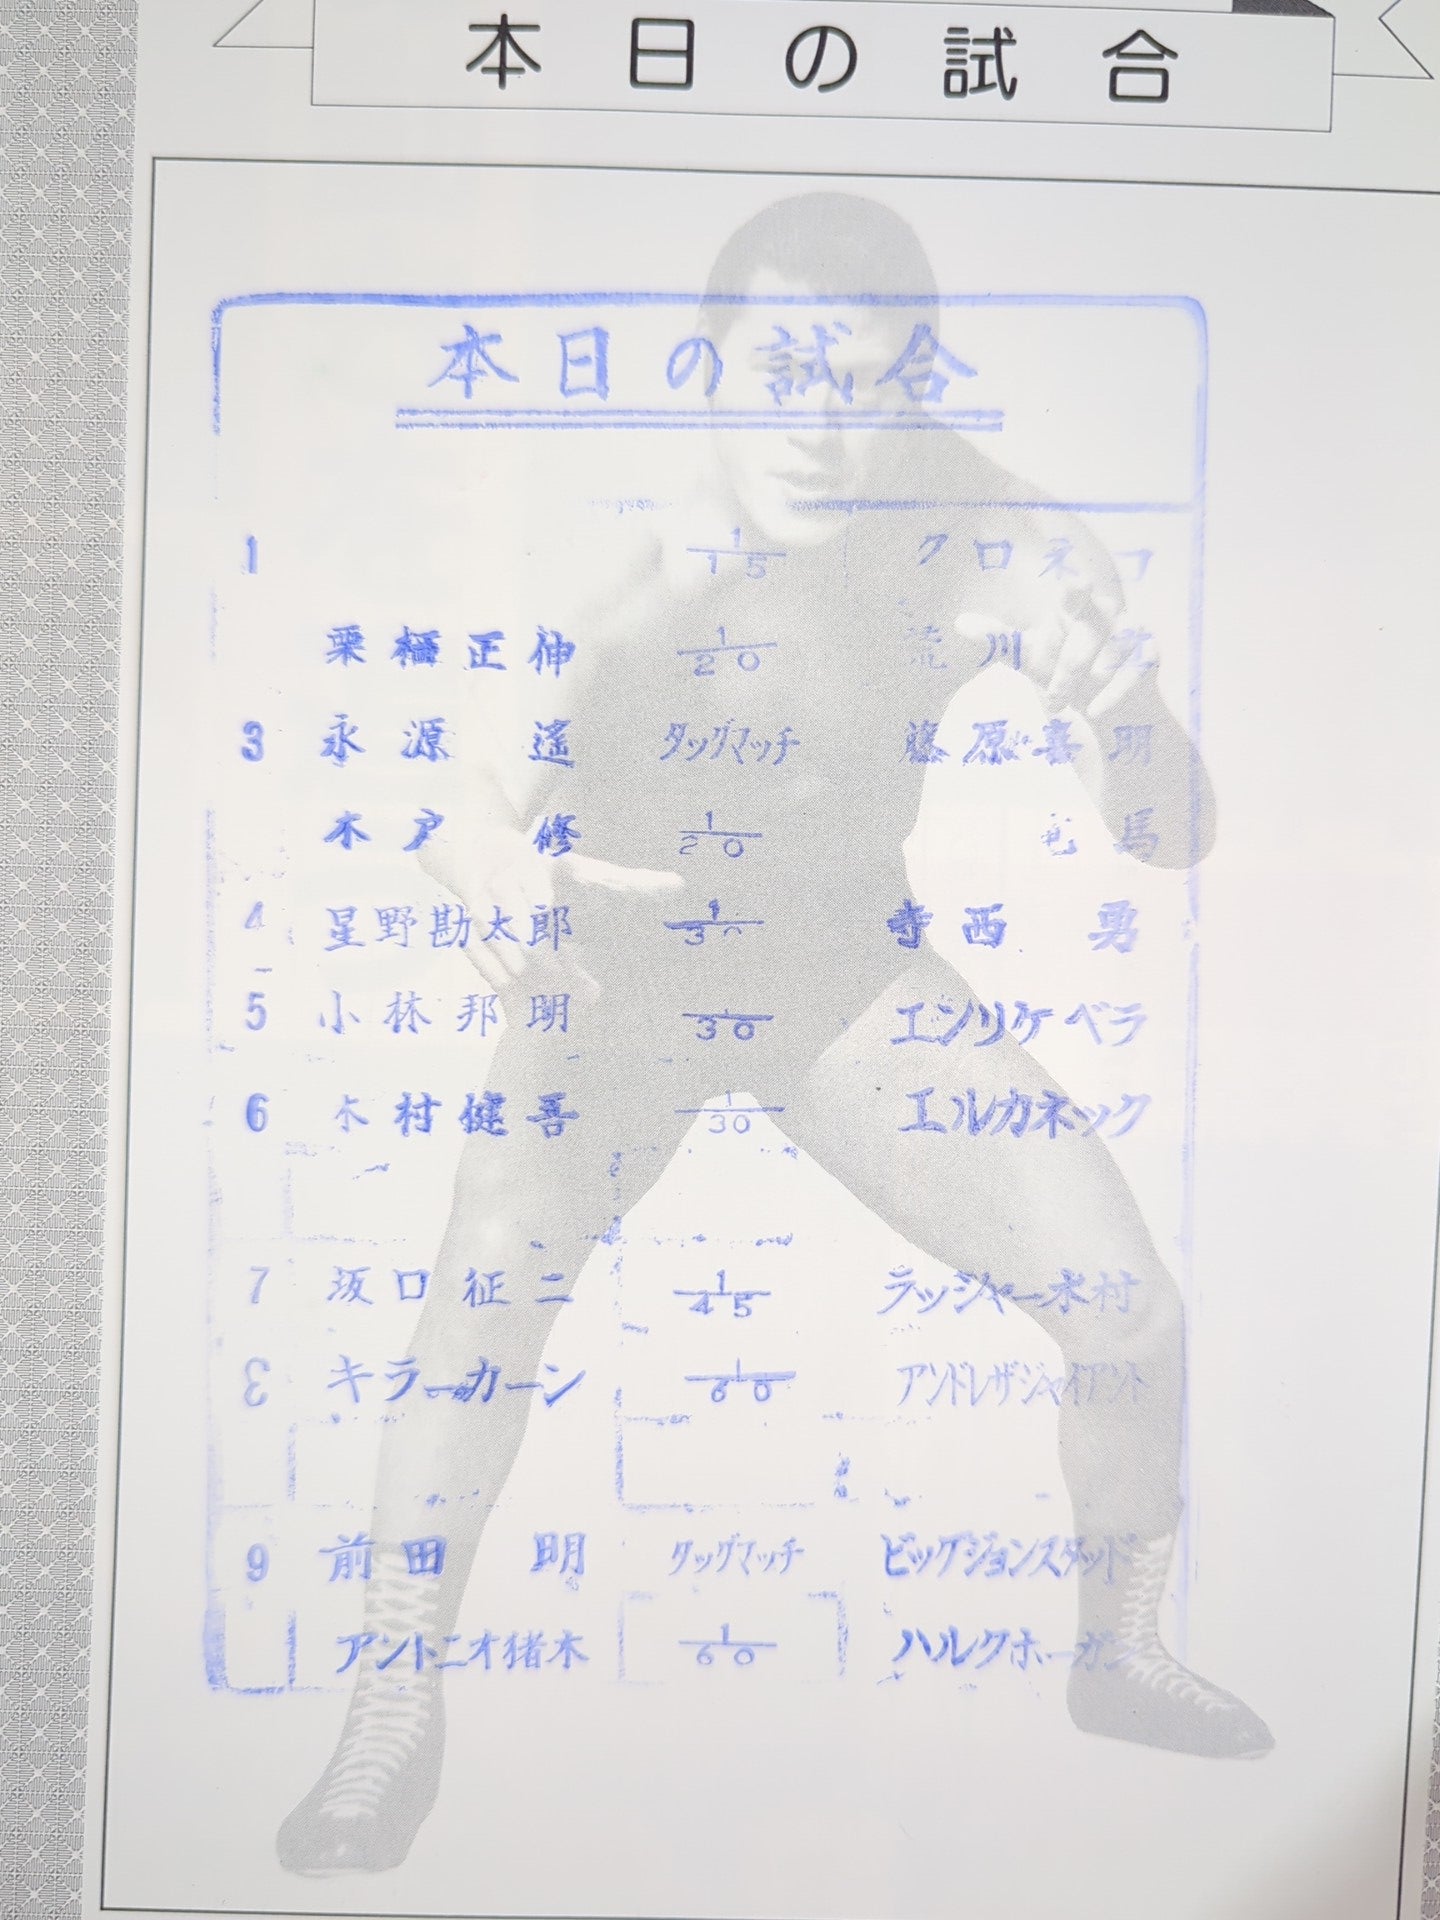 本日の試合
本日の試合
1 1/15 クロネコ
栗栖正伸 1/20 荒川
3 永源遙 タッグマッチ 藤原喜明
木戸修 1/20 竜馬
4 星野勘太郎 寺西勇
5 小林邦明 30 エンリケベラ
6 木村健吾 1/30 エルカネック
7 坂口征二 1/45 ラッシャー木村
キラーカーン 1/60 アンドレザジャイアント
9 前田明 タッグマッチ ビッグジョンスタッド
アントニオ猪木 1/60 ハルクホーガン